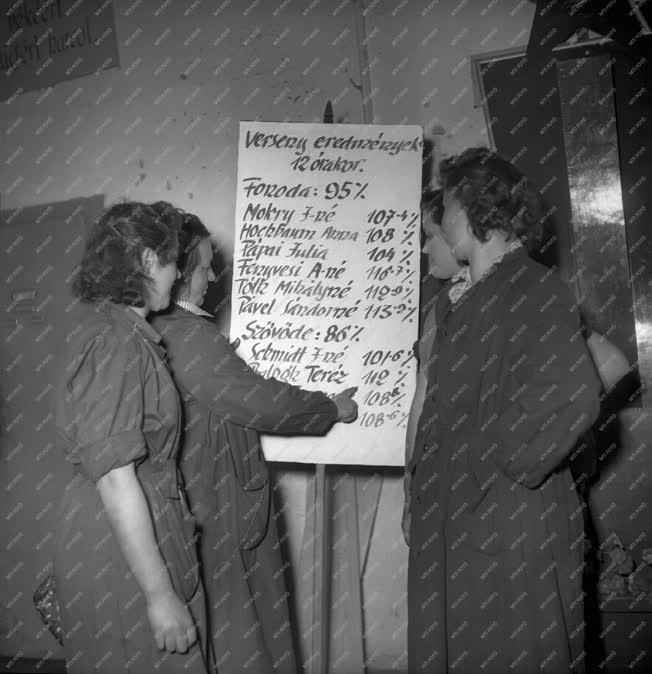 Verseny eredmények
12 órakor.
Fonoda: 95%
Mokry J-né 107·4%
Hochbaum Anna 108%
Pápai Julia 104%
Fenyvesi A-né 116·7%
Tóth Mihályné 112·9%
Pável Sándorné 113·2%
Szövöde: 86%
Schmidt J-né 101·6%
Teréz 112%
108%
108·6%
MTI FOTÓ